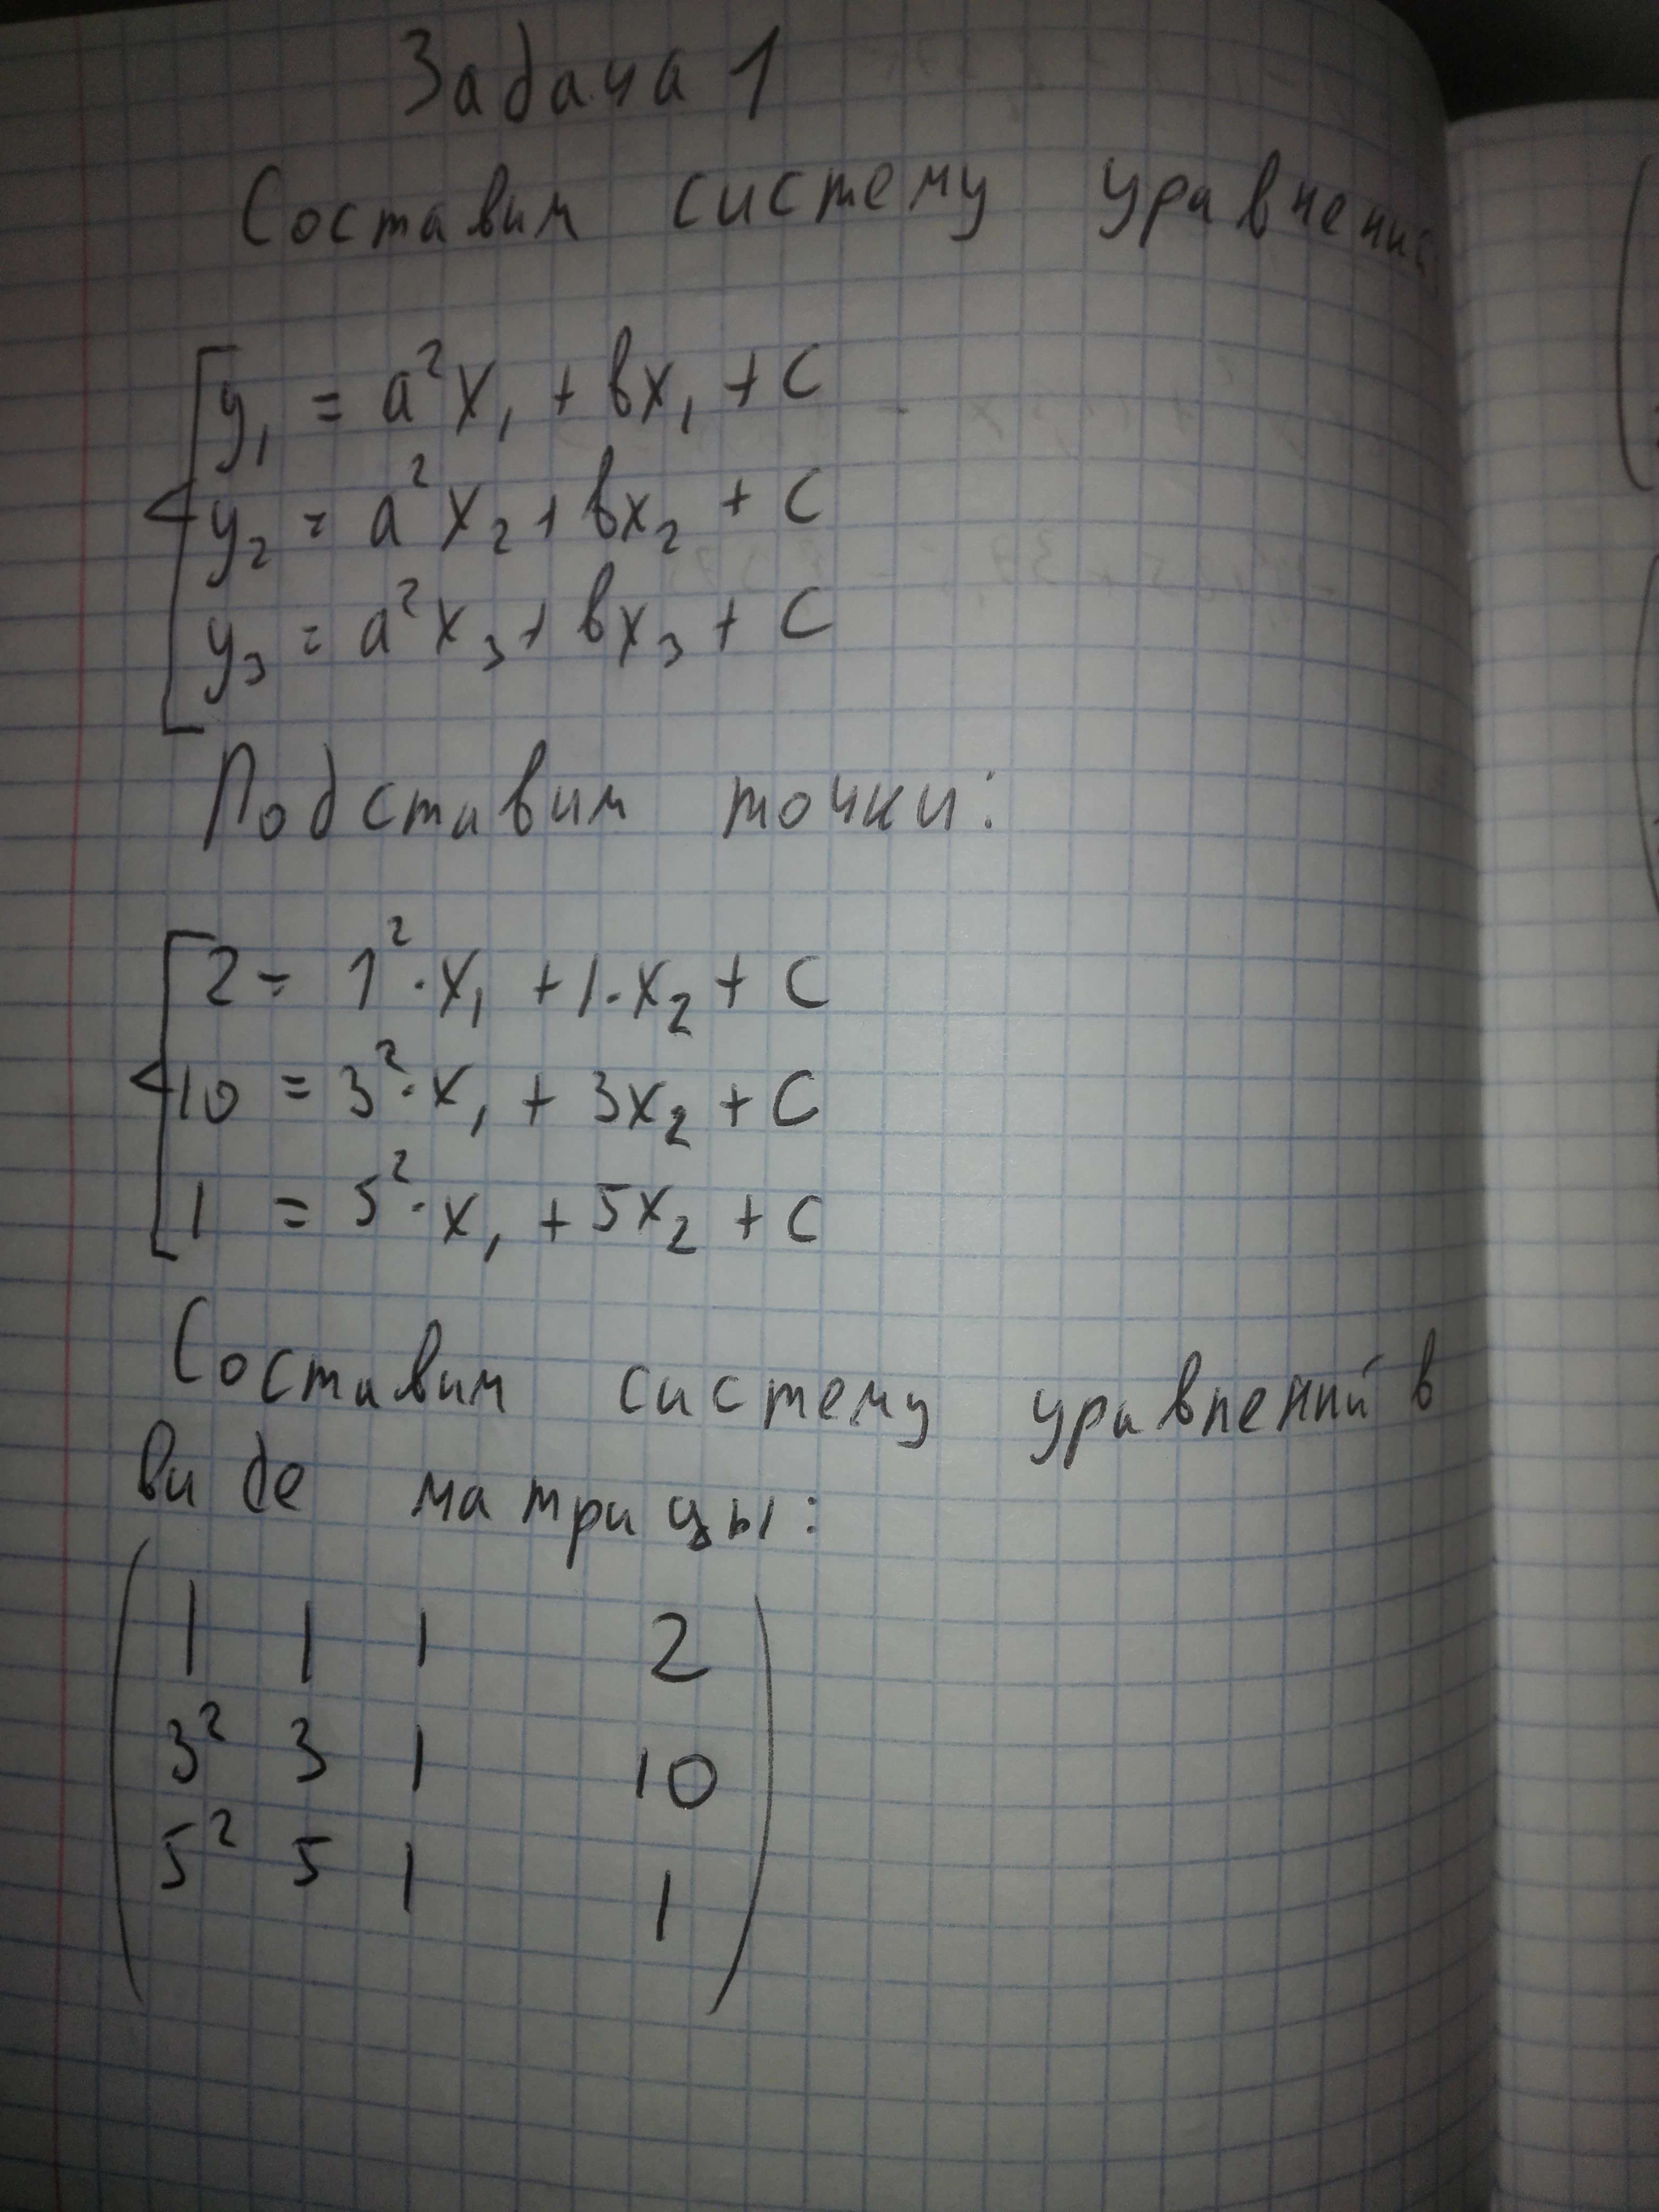 Задача 1
Составим систему уравнений
y₁ = a²x₁ + bx₁ + c
y₂ = a²x₂ + bx₂ + c
y₃ = a²x₃ + bx₃ + c
Подставим точки:
2 = 1²·x₁ + 1·x₂ + c
10 = 3²·x₁ + 3x₂ + c
1 = 5²·x₁ + 5x₂ + c
Составим систему уравнений в
виде матрицы:
1 1 1 2
3² 3 1 10
5² 5 1 1